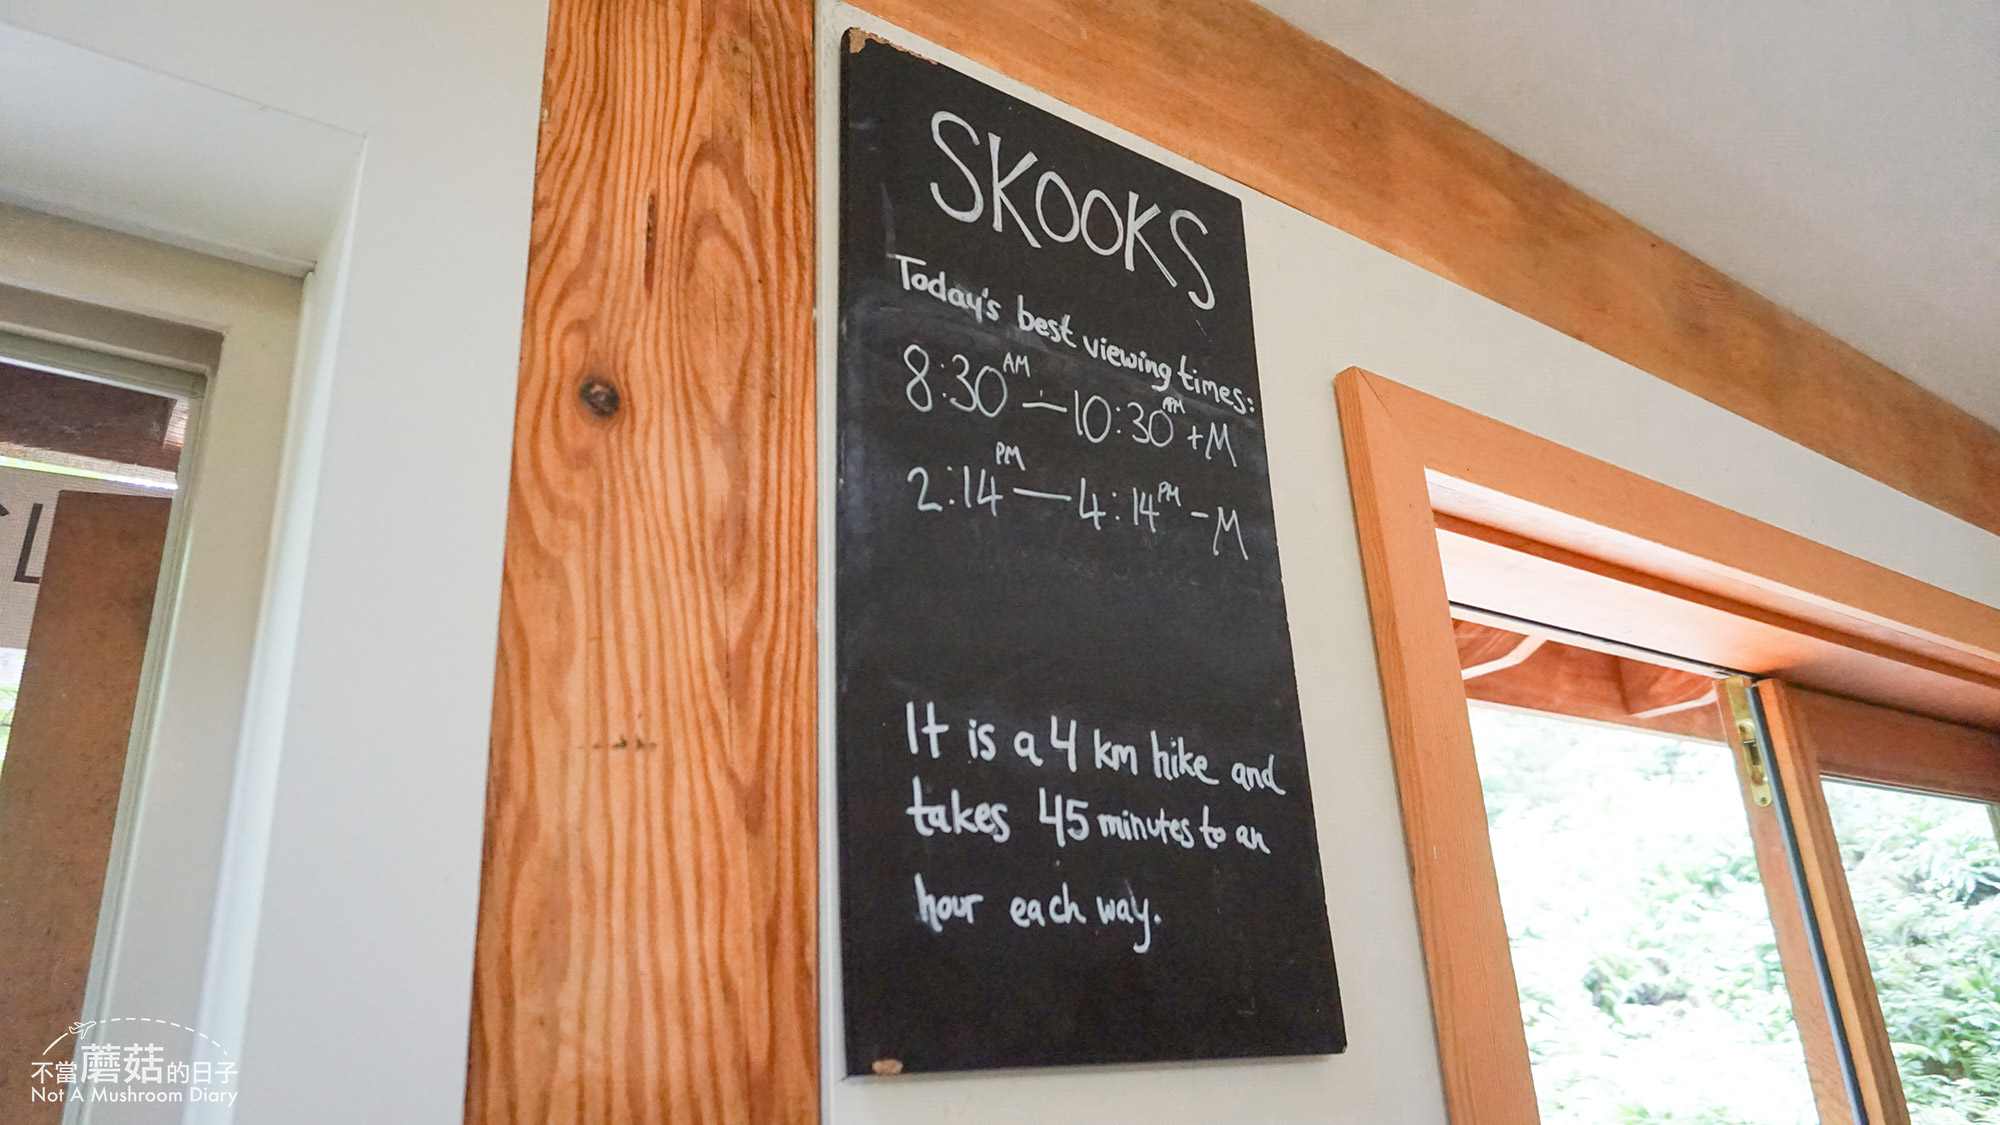 SKOOKS
Today's best viewing times:
8:30 AM — 10:30 AM +M
2:14 PM — 4:14 PM -M
It is a 4 km hike and
takes 45 minutes to an
hour each way.
不當蘑菇的日子
Not A Mushroom Diary